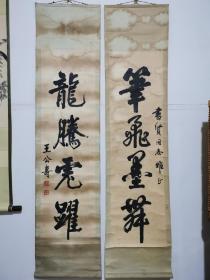 書賢同志雅正
筆飛墨舞
龍騰虎躍
王公壽